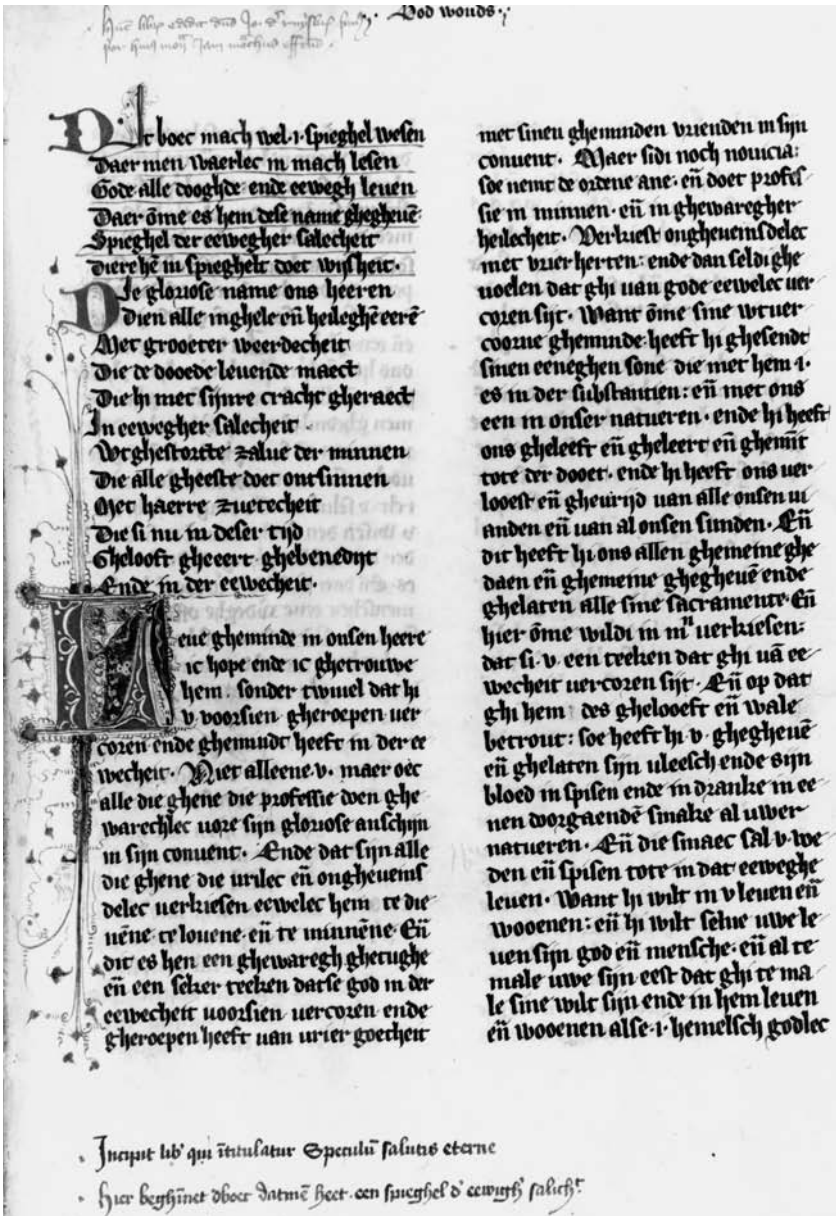 Hunc librum edidit dns Jo. d'
God wouds
Dit boec mach wel .i. spieghel wesen
Daer men waerlec in mach lesen
Gode alle dooghde ende eewegh leuen
Daer ōme es hem dese name ghegheuē
Spieghel der eewegher salecheit
Die rehē in spieghelt doet wijsheit.
Die gloriose name ons heeren
Dien alle inghele eñ heileghē eerē
Met grooeter weerdecheit
Die de dooede leuende maect
Die hi met sijnre cracht gheraect
In eewegher salecheit.
Wtghestortte zalue der minnen
Die alle gheeste doet ontsinnen
Met haerre zuetecheit
Die si nu in deser tijd
Ghelooft gheeert ghebenedijt
Ende in der eewecheit.
Lieue gheminde in onsen heere
ic hope ende ic ghetrouwe
hem sonder twiuel dat hi
v voorsien gheroepen uer
coren ende ghemindt heeft in der ee
wecheit. Niet alleene .v. maer oec
alle die ghene die professie doen ghe
warechlec uore sijn gloriose anschijn
in sijn conuent. Ende dat sijn alle
die ghene die urilec eñ ongheueins
delec uerkiesen eewelec hem te die
nēne te louene eñ te minnēne. Eñ
dit es hen een ghewaregh ghetughe
eñ een seker teeken datse god in der
eewecheit uoorsien uercoren ende
gheroepen heeft uan urier goetheit
met sinen gheminden urienden in sijn
conuent. Maer sidi noch nouicia:
soe nemt de ordene ane. eñ doet profes
sie in minnen. eñ in ghewaregher
heilecheit. Verkiest ongheueinsdelec
met vrier herten: ende dan seldi ghe
uoelen dat ghi uan gode eewelec uer
coren sijt. Want ōme sine wtuer
coorne gheminde heeft hi ghesendt
sinen eeneghen sone die met hem .i.
es in der substantien: eñ met ons
een in onser natueren. ende hi heeft
ons gheleeft eñ gheleert eñ ghemīt
tote der dooet. ende hi heeft ons uer
looest eñ gheurijd uan alle onsen ui
anden eñ uan al onsen sunden. Eñ
dit heeft hi ons allen ghemeine ghe
daen eñ ghemeine ghegheuē ende
ghelaten alle sine sacramente. Eñ
hier ōme wildi in uerkiesen:
dat si .v. een teeken dat ghi uā ee
wecheit uercoren sijt. Eñ op dat
ghi hem des gheloeeft eñ wale
betrout: soe heeft hi .v. ghegheuē
eñ ghelaten sijn uleesch ende sijn
bloed in spisen ende in dranke in ee
nen doorgaendē smake al uwer
natueren. Eñ die smaec sal .v. voe
den eñ spisen tote in dat eeweghe
leuen. Want hi wilt in v leuen eñ
wooenen: eñ hi wilt selue uwe le
uen sijn god eñ mensche. eñ al te
male uwe sijn eest dat ghi te ma
le sine wilt sijn ende in hem leuen
eñ wooenen alse .i. hemelsch godlec
Incipit lib' qui ītitulatur Speculū salutis eterne
Hier beghīnet dboec datmē heet een spieghel d' eewigh' salich^t.